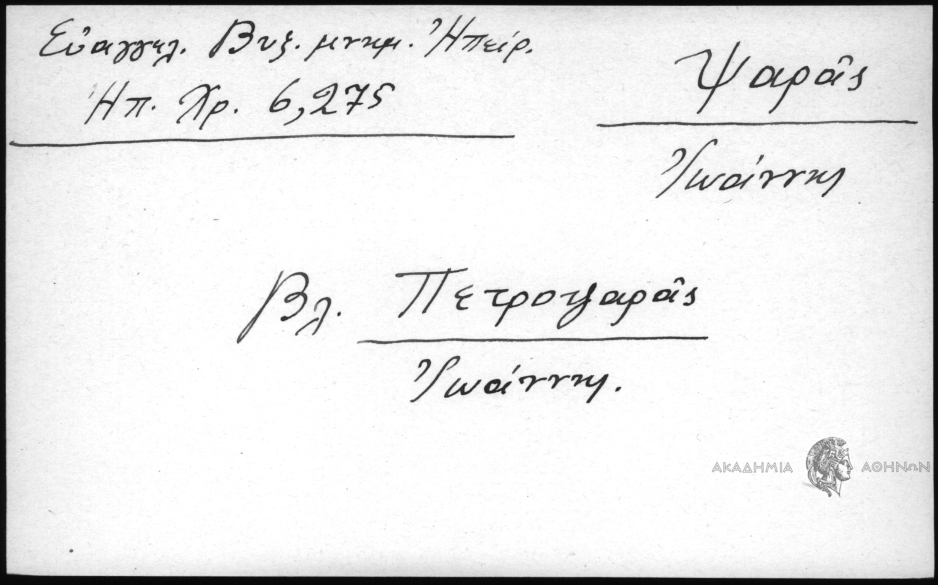 Εὐαγγελ. Βυζ. μνημ. Ἠπείρ.
Ἠπ. Χρ. 6,275
Ψαρᾶς
Ἰωάννης
Βλ. Πετροψαρᾶς
Ἰωάννης.
ΑΚΑΔΗΜΙΑ ΑΘΗΝΩΝ